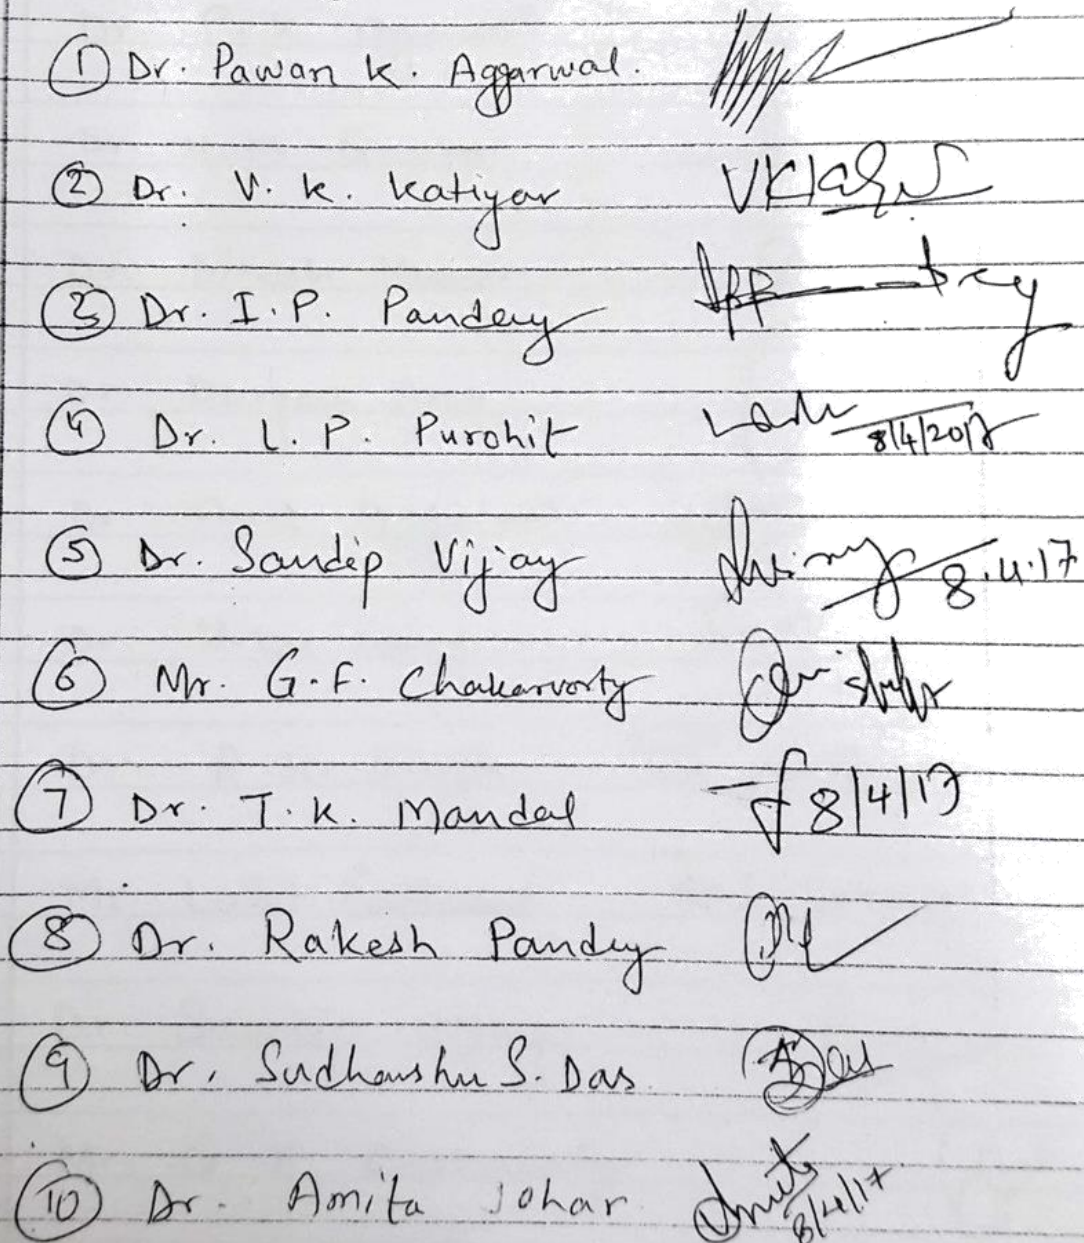 ① Dr. Pawan K. Aggarwal.
② Dr. V. K. Katiyar
③ Dr. I. P. Pandey
④ Dr. L. P. Purohit 8/4/2017
⑤ Dr. Sandip Vijay 8.4.17
⑥ Mr. G. F. Chakarvorty
⑦ Dr. T. K. Mandal 8/4/17
⑧ Dr. Rakesh Pandey
⑨ Dr. Sudhanshu S. Das
⑩ Dr. Amita Johar 8/4/17